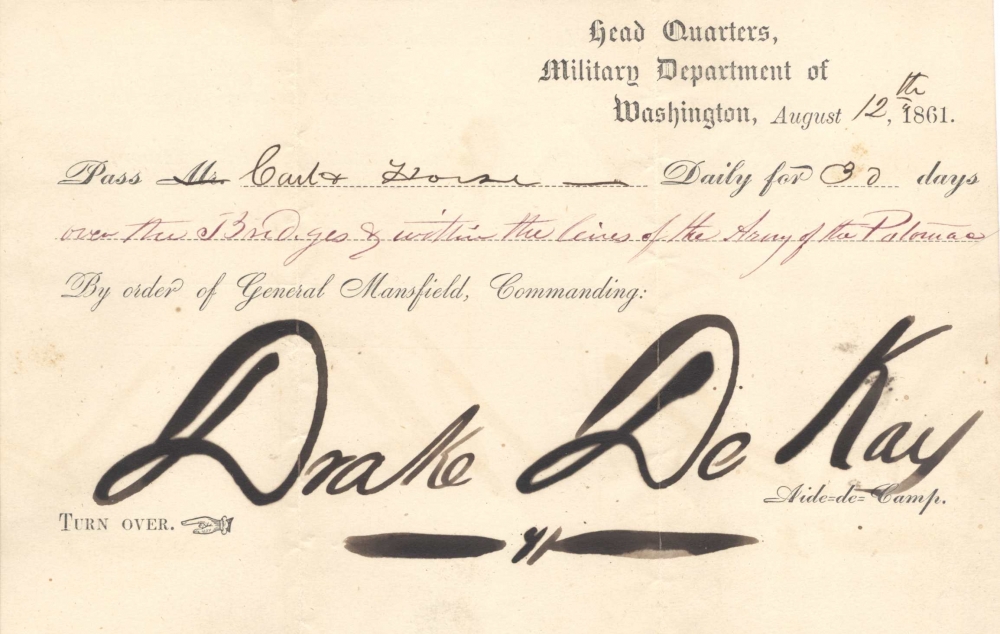 Head Quarters,
Military Department of
Washington, August 12th, 1861.
Pass Mr Cart & Horse — Daily for 30 days
over the Bridges & within the lines of the Army of the Potomac
By order of General Mansfield, Commanding:
Drake De Kay
Aide=de=Camp.
TURN OVER.